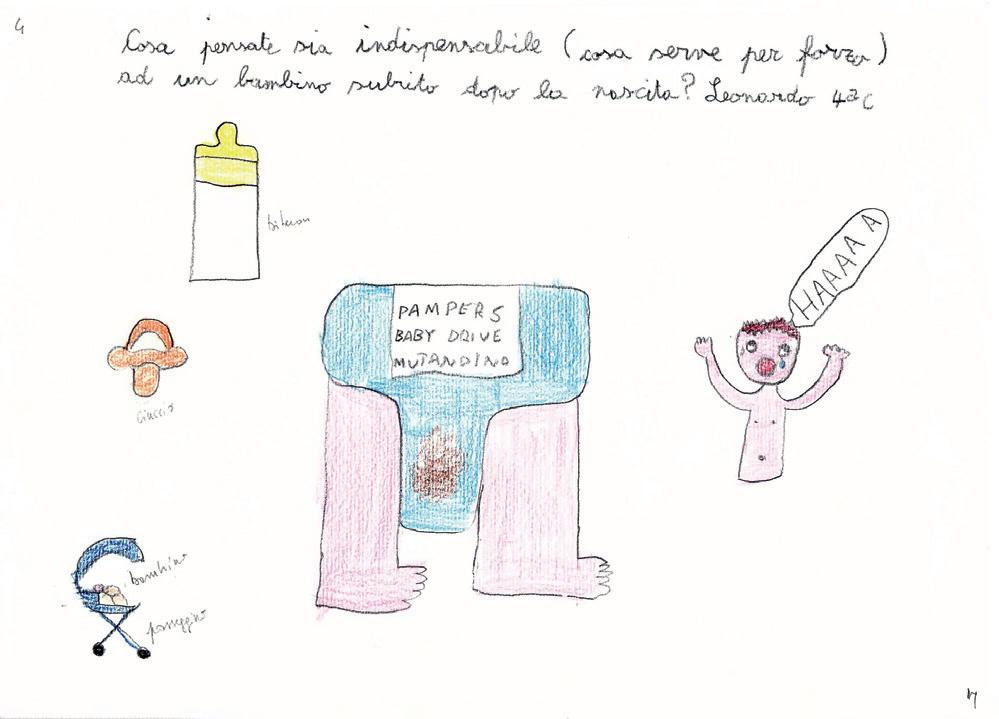 4
Cosa pensate sia indispensabile (cosa serve per forza)
ad un bambino subito dopo la nascita? Leonardo 4ªC
biberon
HAAAAA
PAMPERS
BABY DRIVE
MUTANDINO
ciuccio
bambino
passeggino